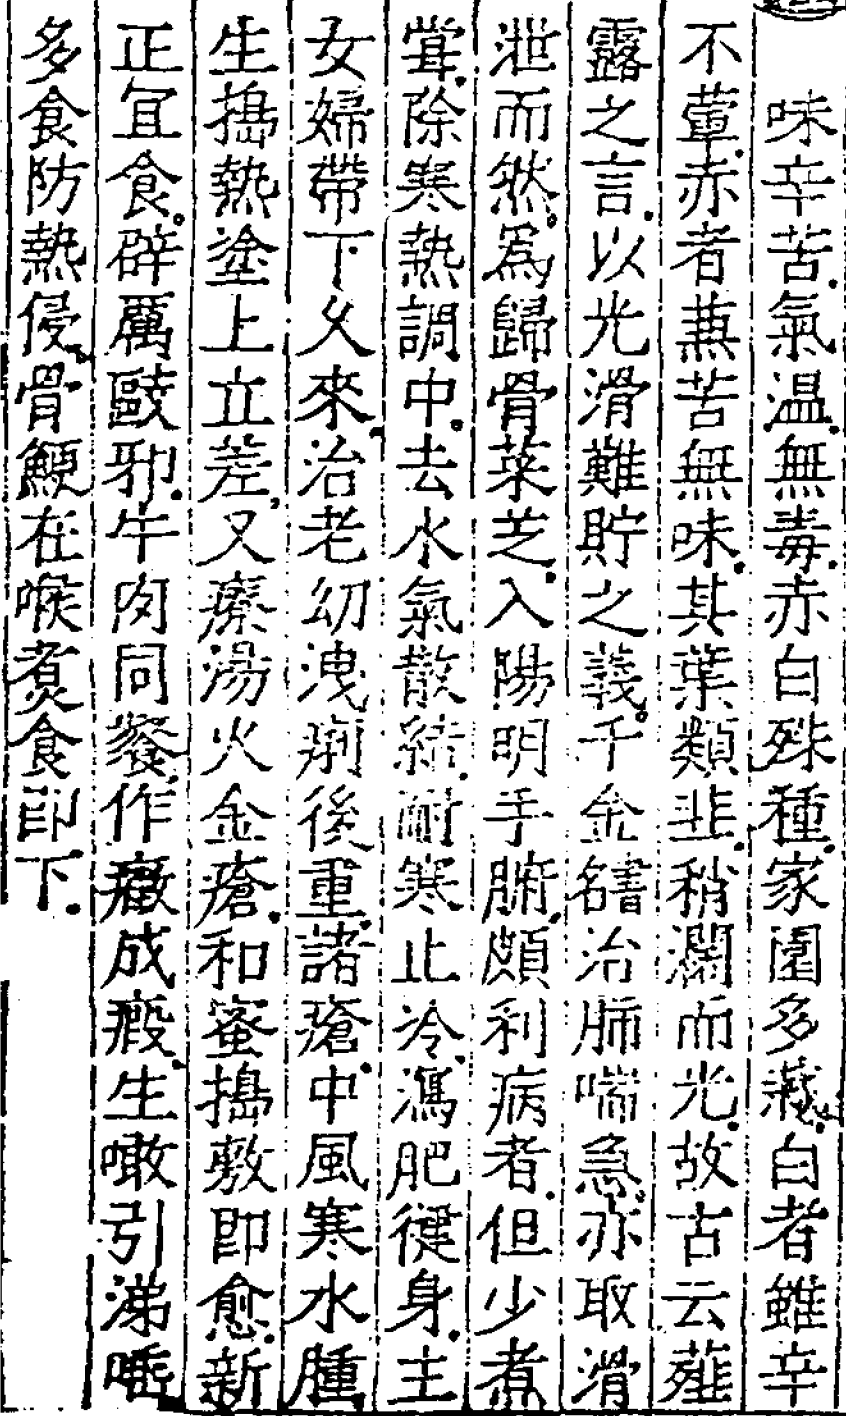 味辛苦氣温無毒赤白殊種家園多蒔白者雖辛
不葷赤者兼苦無味其葉類韭稍濶而光故古云薤
露之言以光滑難貯之義千金譜治肺喘急亦取滑
泄而然爲歸骨菜芝入陽明手腑頗利病者但少煮
嘗除寒熱調中去水氣散結耐寒止冷瀉肥健身主
女婦帶下久來治老幼洩痢後重諸瘡中風寒水腫
生搗熱塗上立差又療湯火金瘡和蜜搗敷即愈新
正宜食辟厲毆邪牛肉同餐作癥成瘕生噉引涕唾
多食防熱侵骨鯁在喉煮食即下